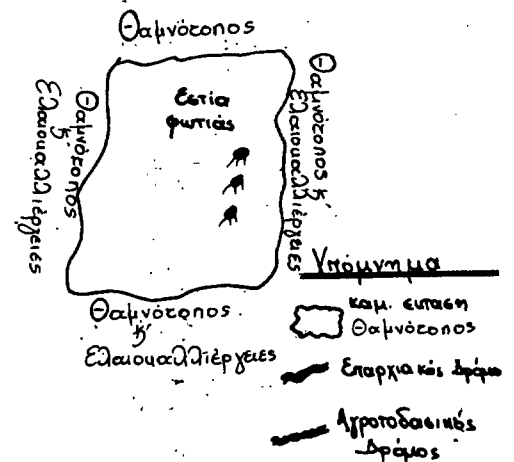 Θαμνότοπος
Εστία
φωτιάς
Θαμνότοπος
κ'
Ελαιοκαλλιέργειες
Θαμνότοπος κ'
Ελαιοκαλλιέργειες
Θαμνότοπος
κ'
Ελαιοκαλλιέργειες
Υπόμνημα
καμ. εκταση
Θαμνότοπος
Επαρχιακός Δρόμο
Αγροτοδασικός
Δρόμος